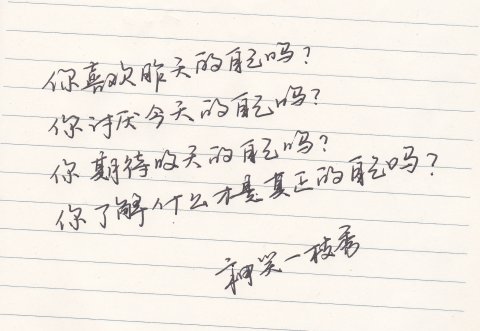 你喜欢昨天的自己吗？
你讨厌今天的自己吗？
你期待明天的自己吗？
你了解什么才是真正的自己吗？
一枝秀